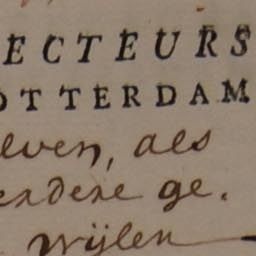 ECTEURS
OTTERDAM
even, als
erdere ge.
wijlen